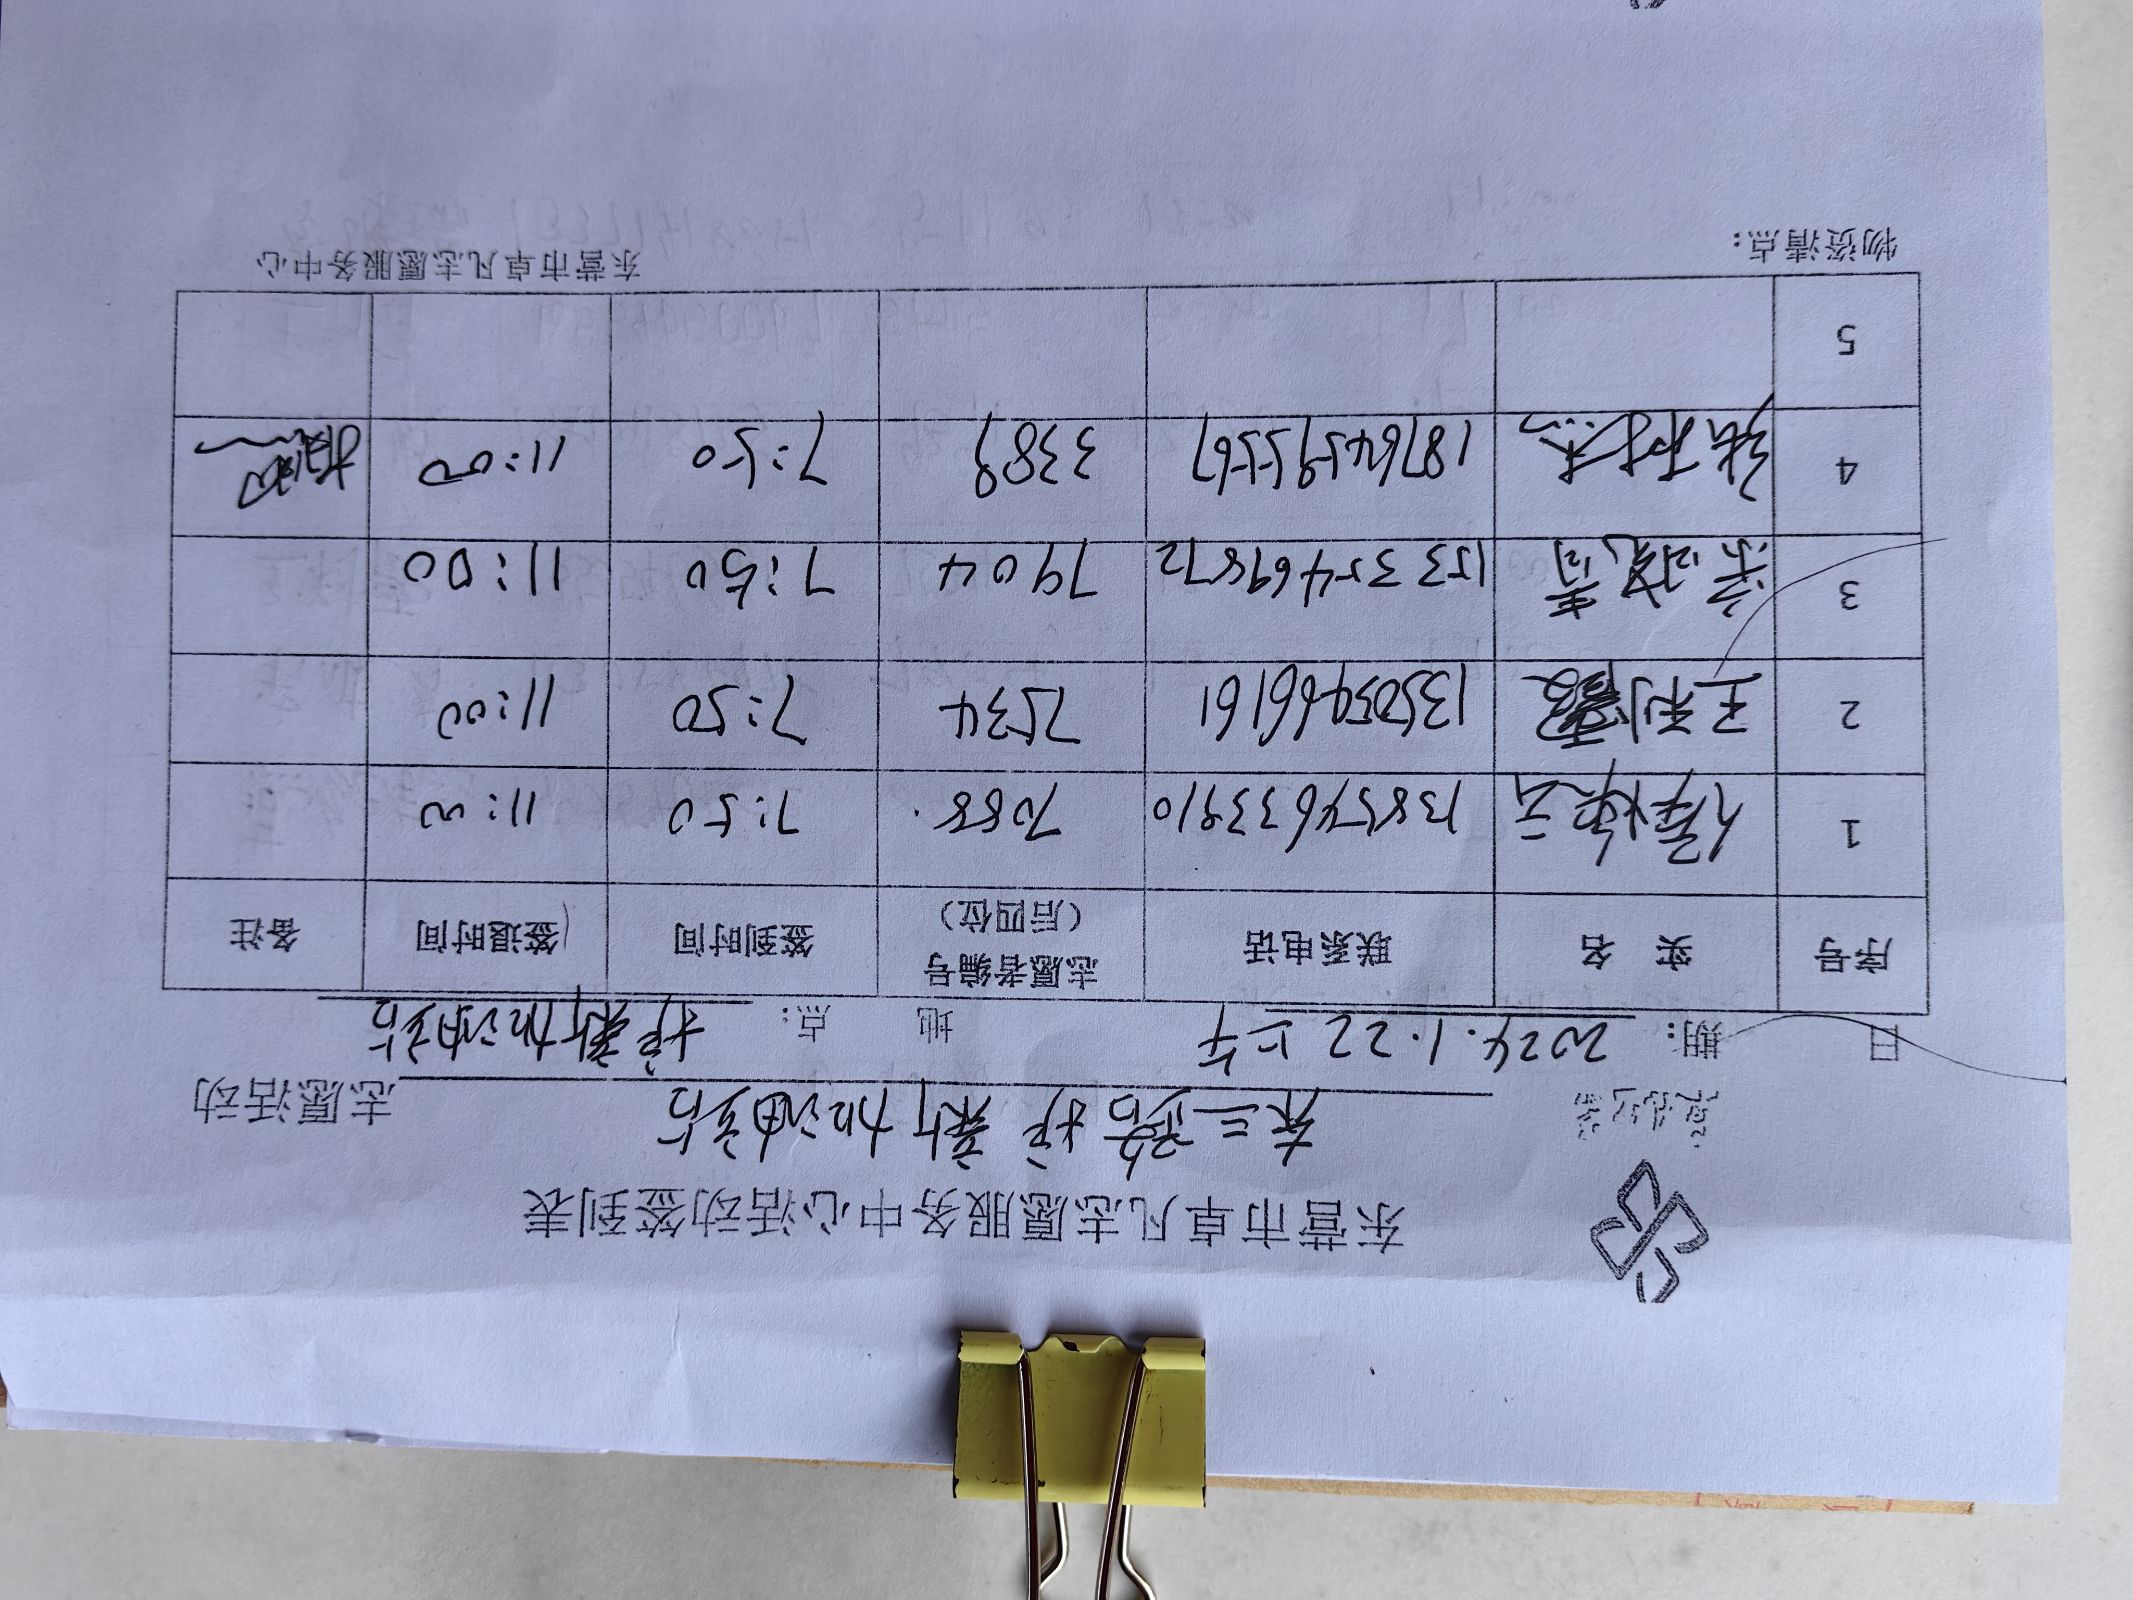 东营市卓凡志愿服务中心活动签到表
东三路护新加油站 志愿活动
日 期： 2024.1.22上午 地 点： 护新加油站
序号 实 名 联系电话 志愿者编号（后四位） 签到时间 签退时间 备注
1 13854633910 7088 7:50 11:00
2 王利霞 13505466161 7534 7:50 11:00
3 15335469872 7904 7:50 11:00
4 张树杰 18764595567 3389 7:50 11:00
5
物资清点： 东营市卓凡志愿服务中心